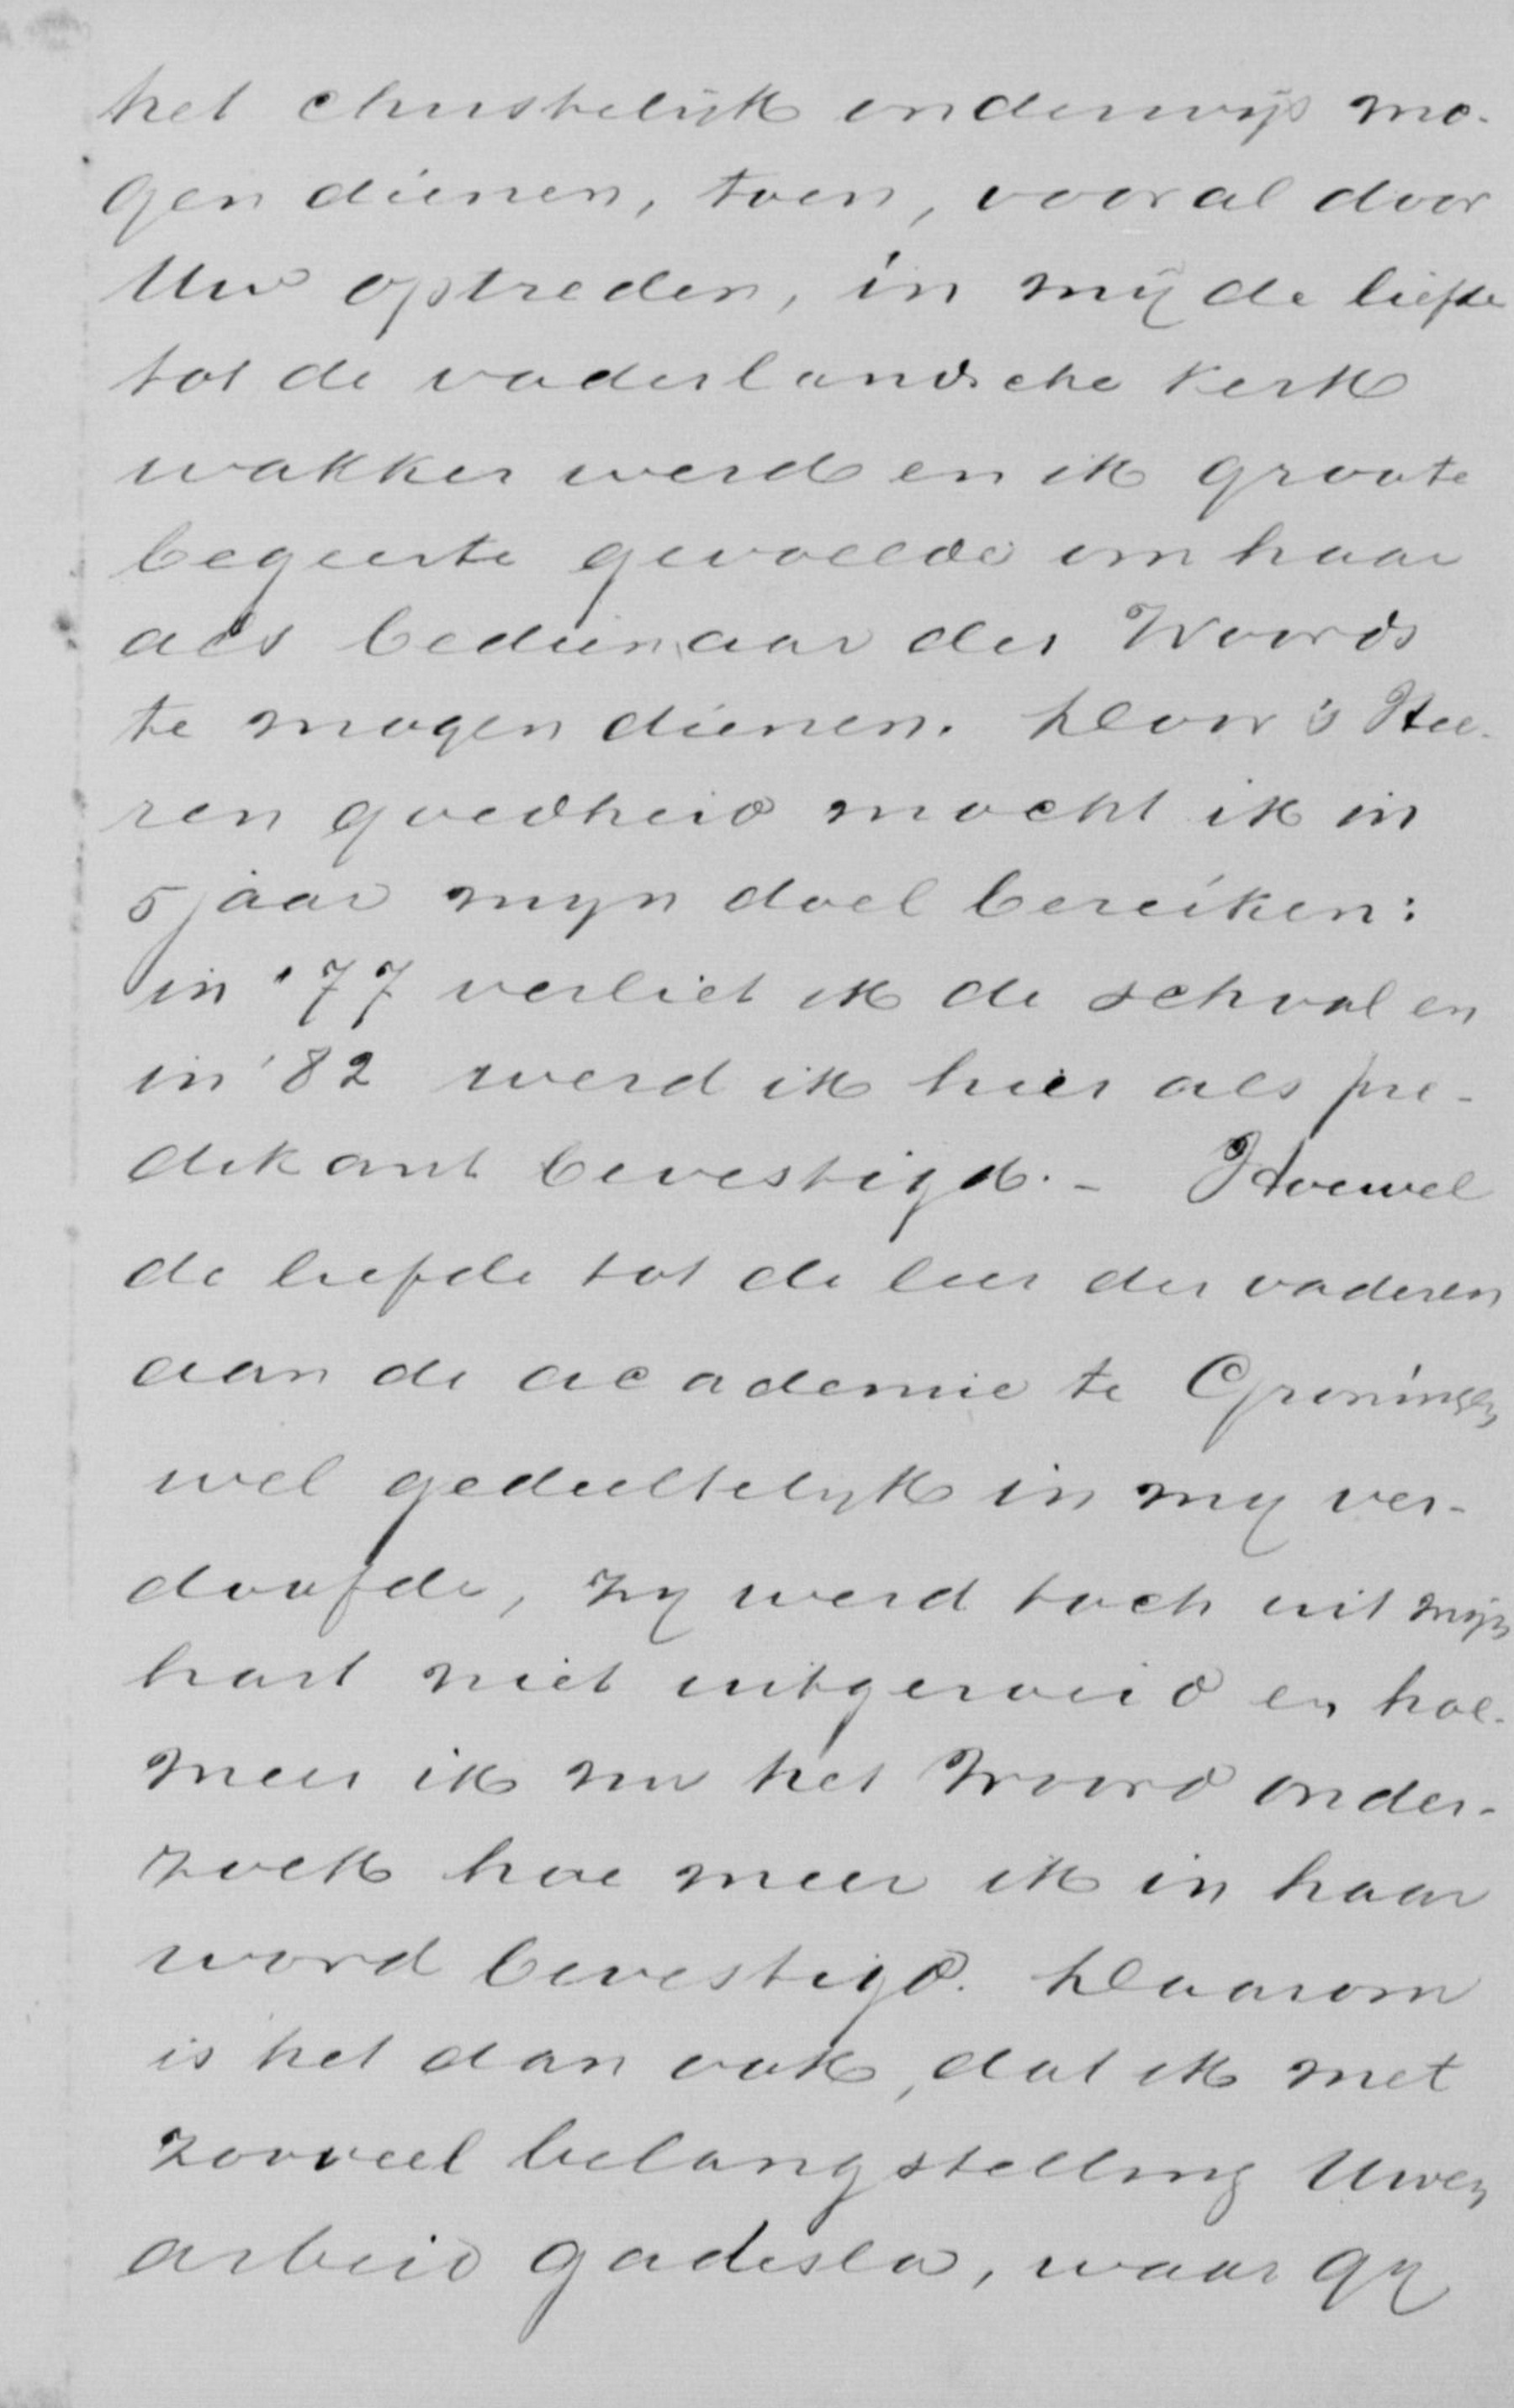 het christelijk onderwijs mo-
gen dienen, toen, vooral door
Uw optreden, in mij de liefde
tot de vaderlandsche kerk
wakker werd en ik groote
begeerte gevoelde om haar
als bedienaar des Woords
te mogen dienen. Door 's Hee-
ren goedheid mocht ik in
5 jaar mijn doel bereiken:
in '77 verliet ik de school en
in '82 werd ik hier als pre-
dikant bevestigd. - Hoewel
de liefde tot de leer der vaderen
aan de academie te Groningen
wel gedeeltelijk in mij ver-
doofde, zij werd toch uit mijn
hart niet uitgeroeid en hoe-
meer ik nu het Woord onder-
zoek hoe meer ik in haar
word bevestigd. Daarom
is het dan ook, dat ik met
zooveel belangstelling Uwen
arbeid gadesla, waar gij